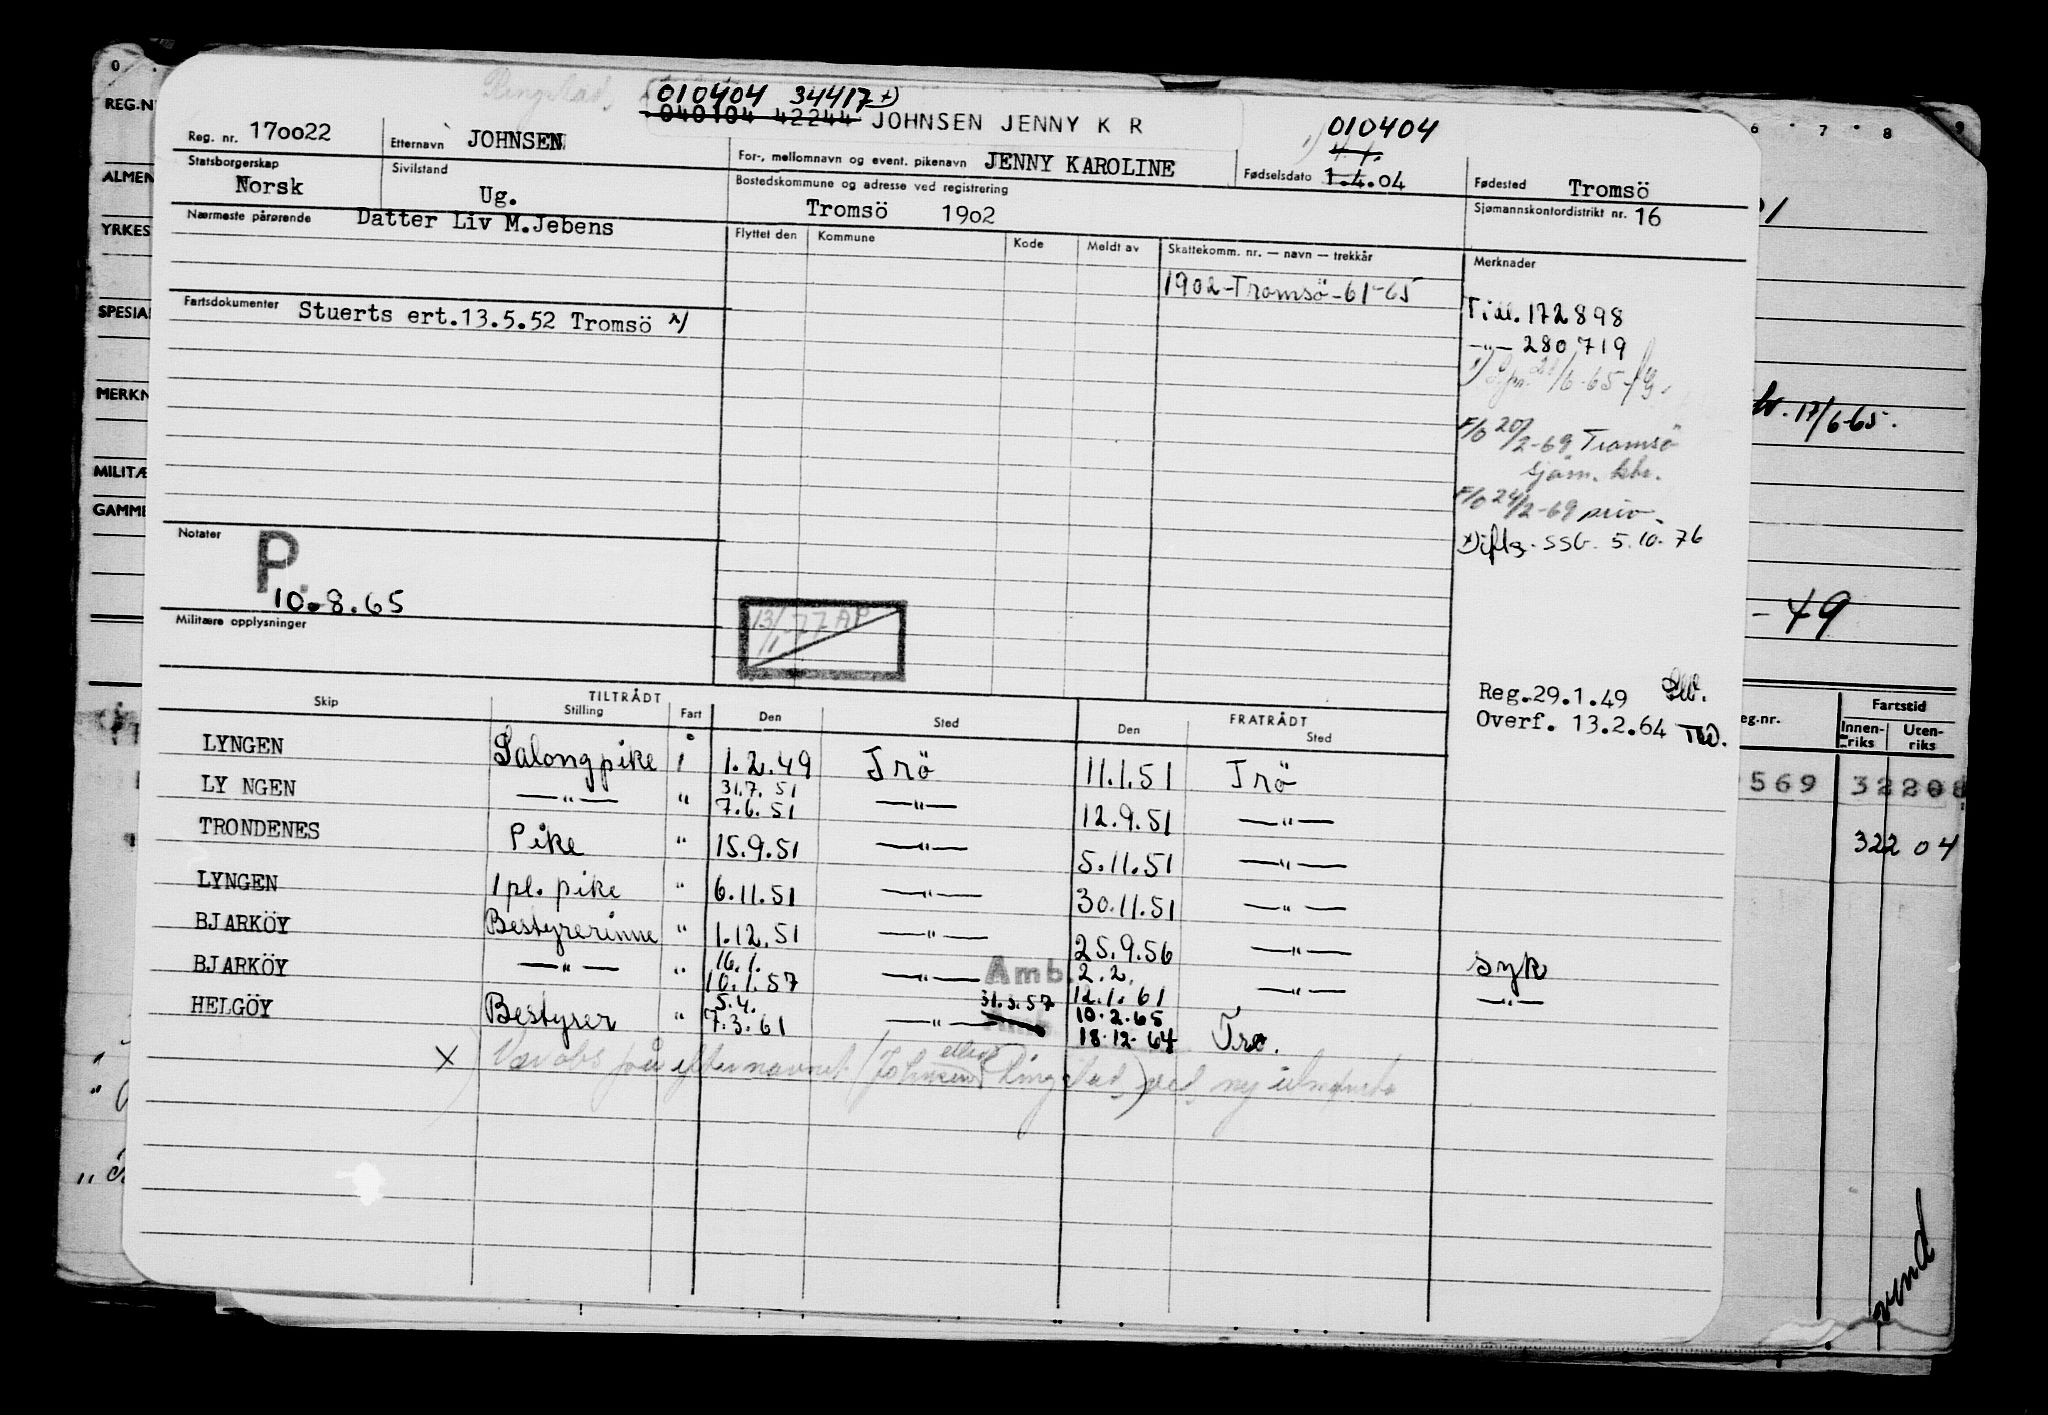 Ringstad,
010404 34417 x)
040104 42244 JOHNSEN JENNY K R
Reg. nr. 17oo22 Etternavn JOHNSEN For-, mellomnavn og event. pikenavn JENNY KAROLINE 1) 010404 Fødselsdato 1.4.04 Fødested Tromsö
Statsborgerskap Norsk Sivilstand Ug. Bostedskommune og adresse ved registrering Tromsö 19o2 Sjømannskontordistrikt nr. 16
Nærmeste pårørende Datter Liv M.Jebens
Flyttet den Kommune Kode Meldt av Skattekomm. nr. — navn — trekkår Merknader
1902-Tromsö-61-65
Fartsdokumenter Stuerts ert.13.5.52 Tromsö x)
Tidl. 172898
—"— 280719
1) 6-65
F/O 20/2-69 Tromsö
sjöm. ktr.
F/O 24/2-69 priv.
x) iflg. SSB. 5.10.76
Notater P.
10.8.65
Militære opplysninger
13/1-77 AP
Reg.29.1.49
Overf. 13.2.64
TILTRÅDT FRATRÅDT
Skip Stilling Fart Den Sted Den Sted
LYNGEN Salongpike i 1.2.49 Trö 11.1.51 Trö
LY NGEN —"— " 31.7.51 7.6.51 —"— 12.9.51 —"—
TRONDENES Pike " 15.9.51 —"— 5.11.51 —"—
LYNGEN 1 pl. pike " 6.11.51 —"— 30.11.51 —"—
BJARKÖY Bestyrerinne " 1.12.51 —"— 25.9.56 —"— syk
BJARKÖY —"— " 16.1. 10.1.57 —"— Amb. 2.2. 12.1.61 —"— —"—
HELGÖY Bestyrer " 5.4. 7.3.61 —"— 31.3.57 10.2.65 18.12.64 Trö.
x Vær obs på efternavnet (Johnsen eller Ringstad,) ved ny utmønstr.
0
REG.N
ALMEN
YRKES
SPESIA
MERKN
MILITÆ
GAMME
6 7 8 9
17/6-65.
-49
eg.nr. Fartstid
Innen-riks Uten-riks
569 32208
32204
vend